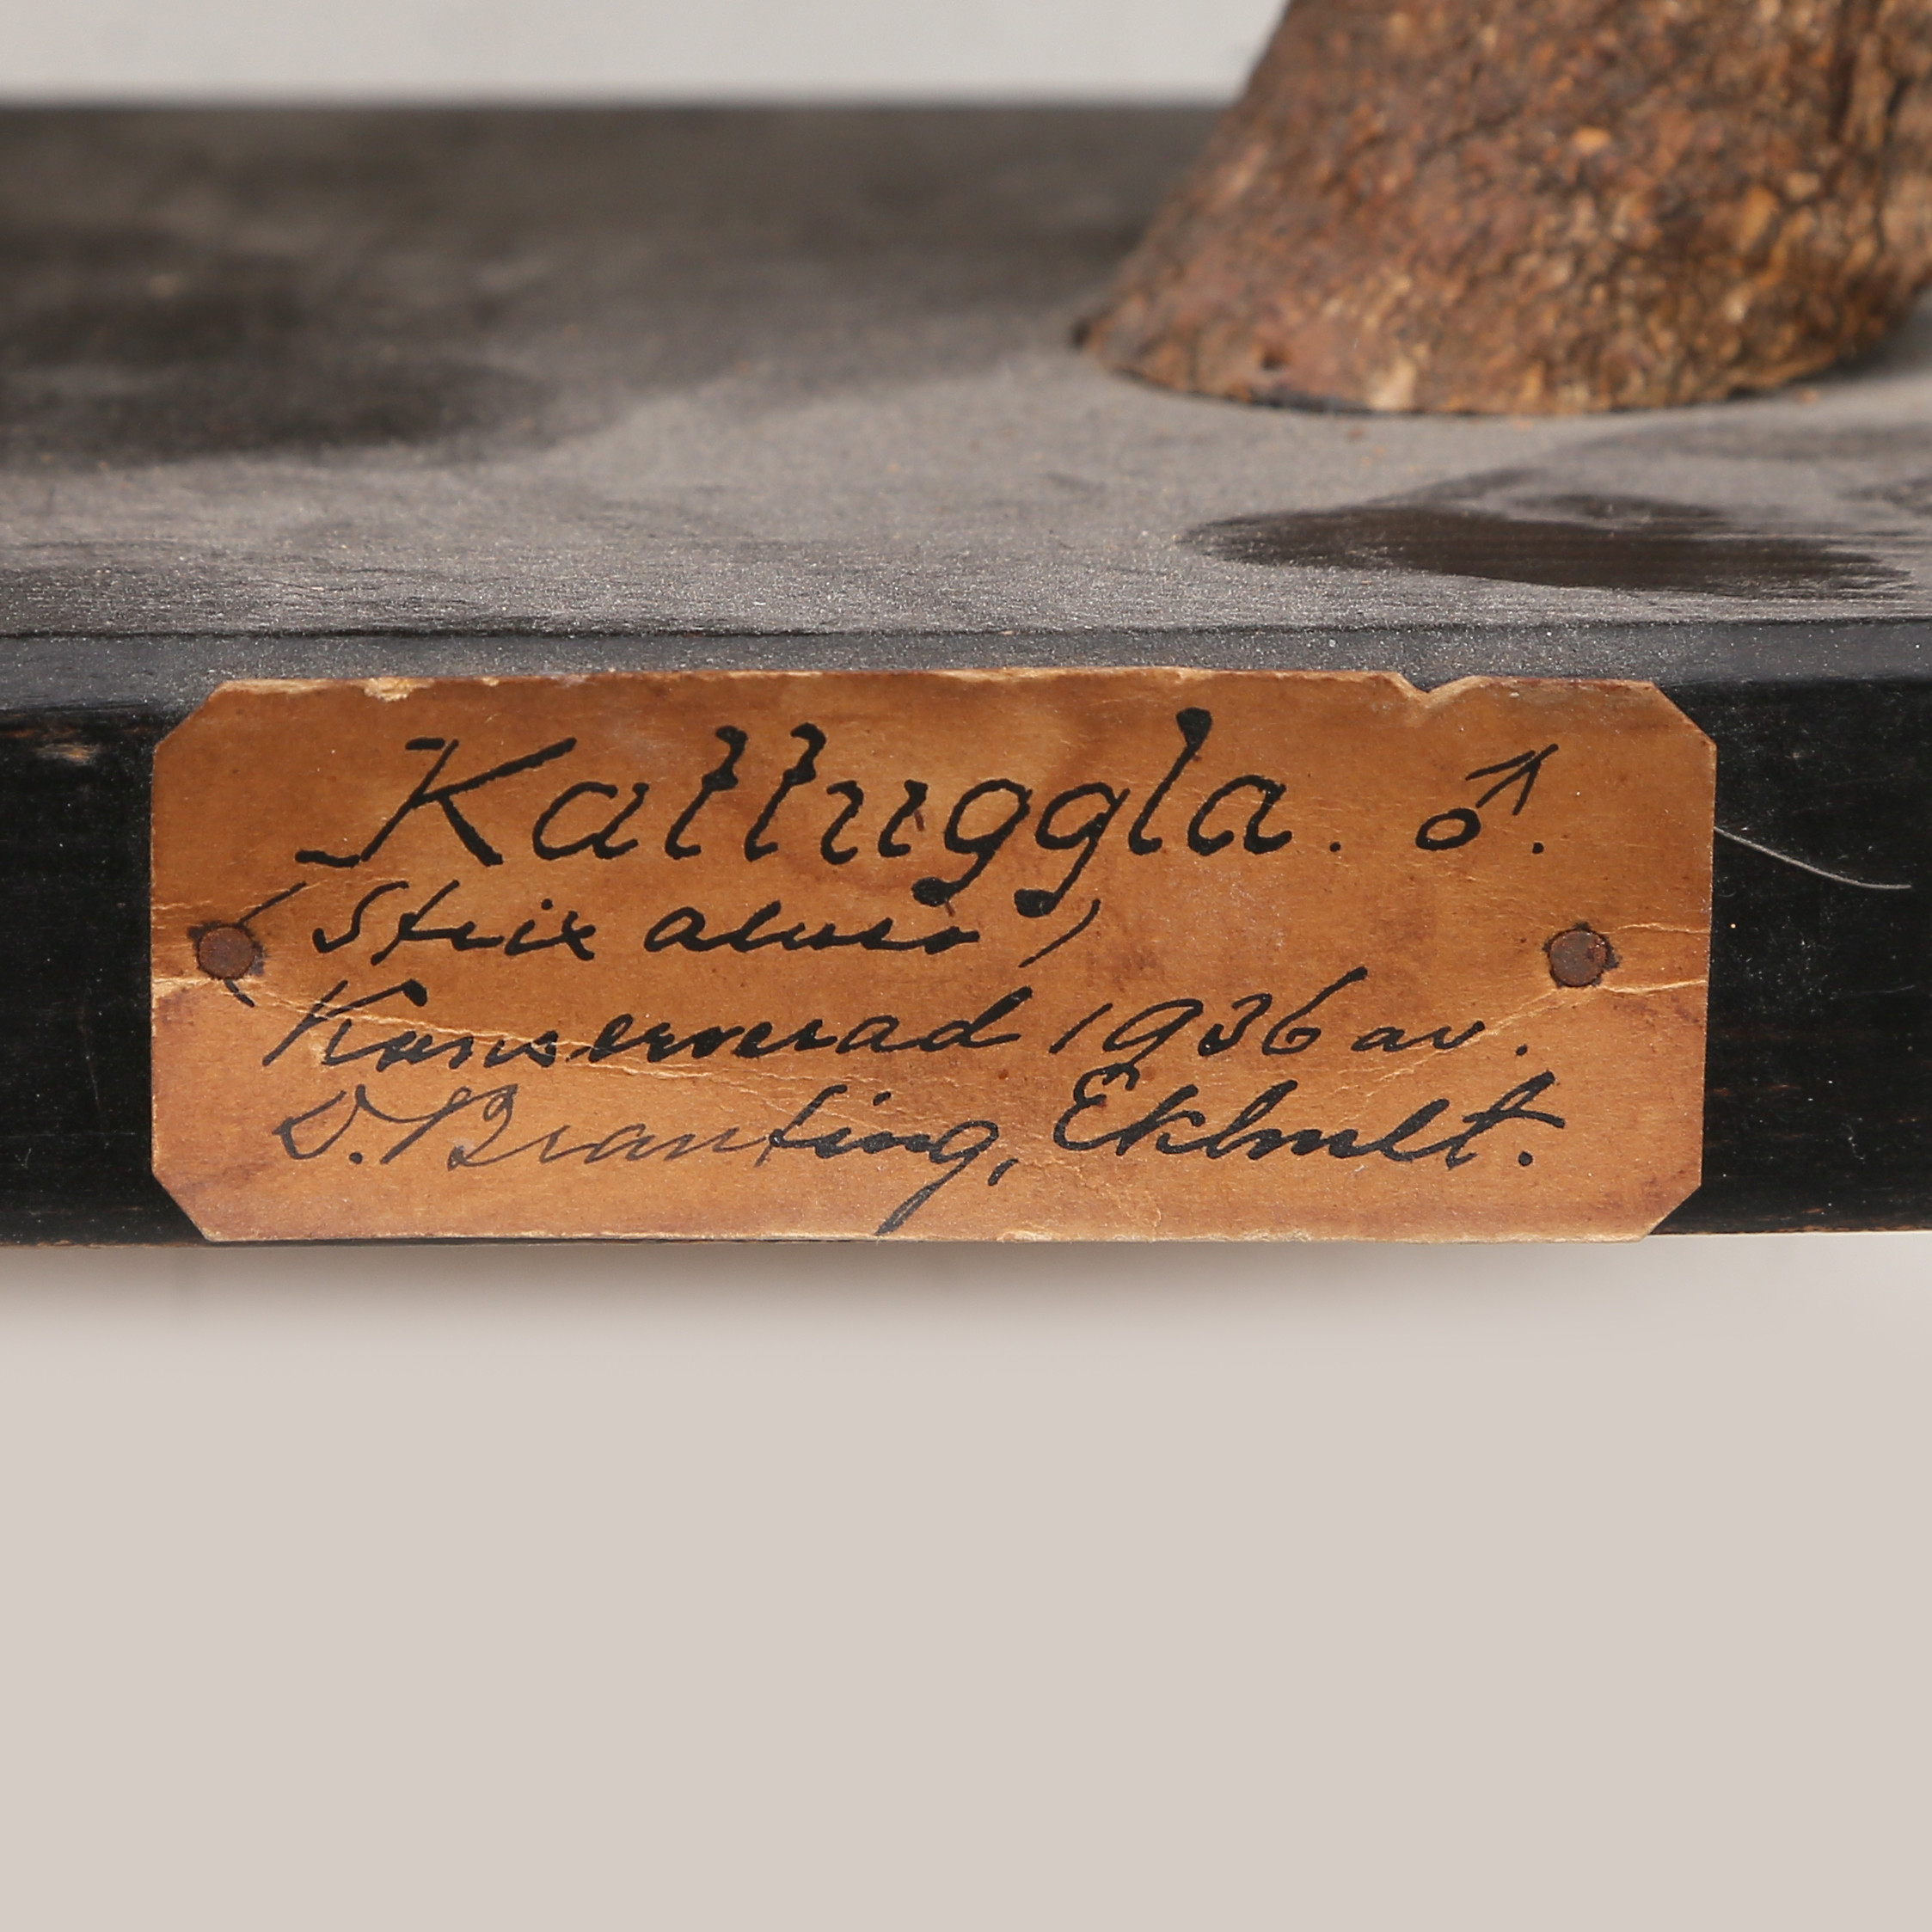 Kattuggla. ♂.
(Strix aluco)
Konserverad 1936 av.
D. Branting,